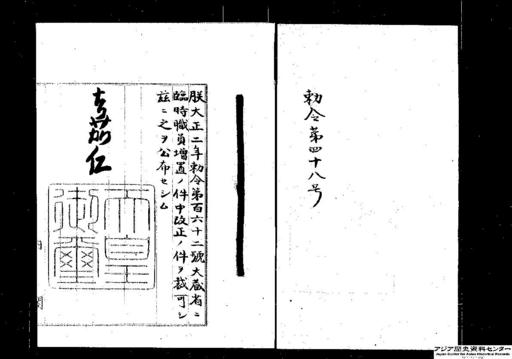 勅令第四十八号
朕大正二年勅令第百六十二號大蔵省ニ
臨時職員増置ノ件中改正ノ件ヲ裁可シ
茲ニ之ヲ公布セシム
嘉仁
天皇
御璽
アジア歴史資料センター
Japan Center for Asian Historical Records